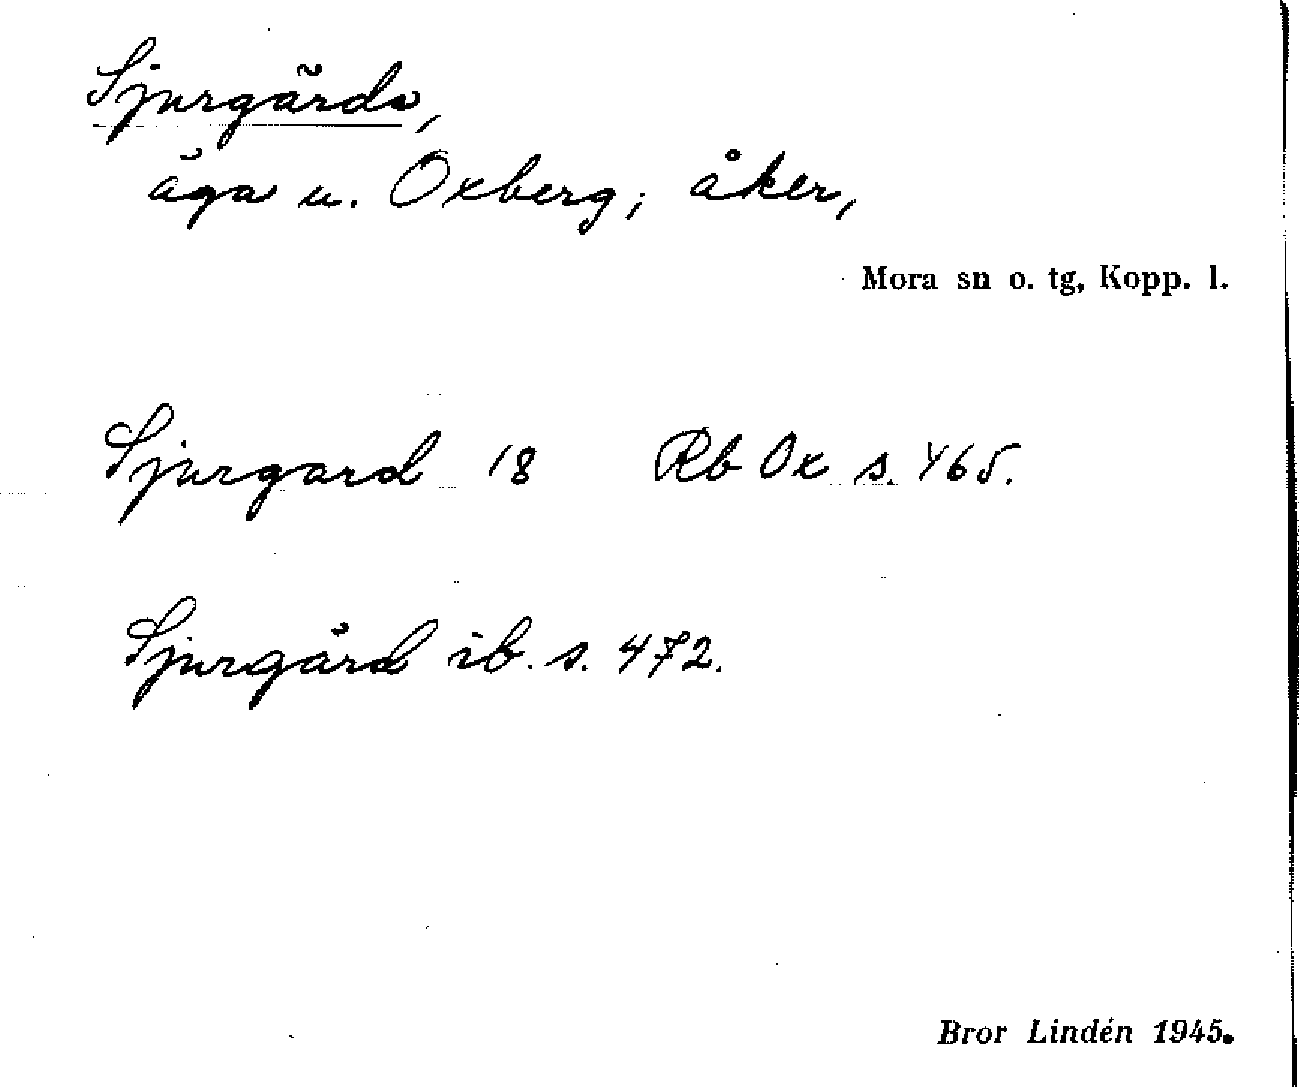 Sjurgärds,
äga u. Oxberg; åker,
Mora sn o. tg, Kopp. l.
Sjurgard 18 Rb Ox s. 465.
Sjurgård ib. s. 472.
Bror Lindén 1945.